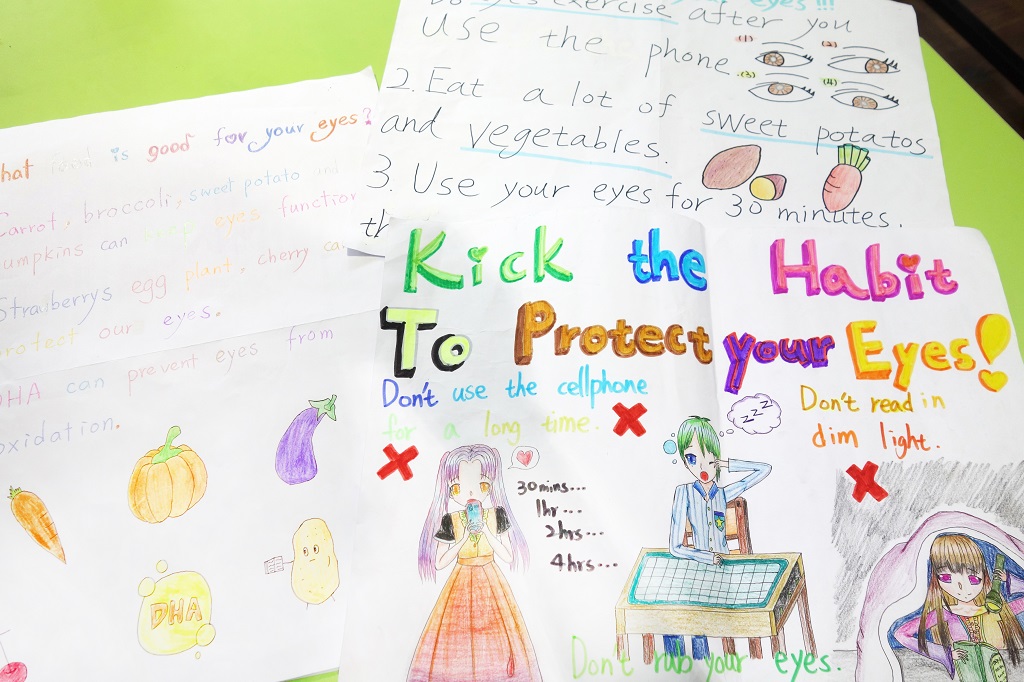 What is good for your eyes?
Carrot, broccoli, sweet potato and
pumpkins can keep eyes function
Straiberrys egg plant, cherry ca
protect our eyes.
DHA can prevent eyes from
oxidation.
DHA
eyes!!!
Do eyes exercise after you
use the phone.
(1) (2)
(3) (4)
2. Eat a lot of sweet potatos
and vegetables.
3. Use your eyes for 30 minutes.
th
Kick the Habit
To Protect your Eyes!
Don't use the cellphone
for a long time.
30mins...
1hr...
2hrs...
4hrs...
zzz
Don't rub your eyes.
Don't read in
dim light.